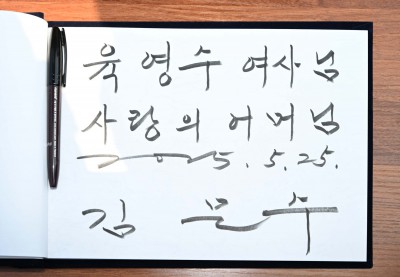 육영수 여사님
사랑의 어머님
2025. 5. 25.
김 문 수